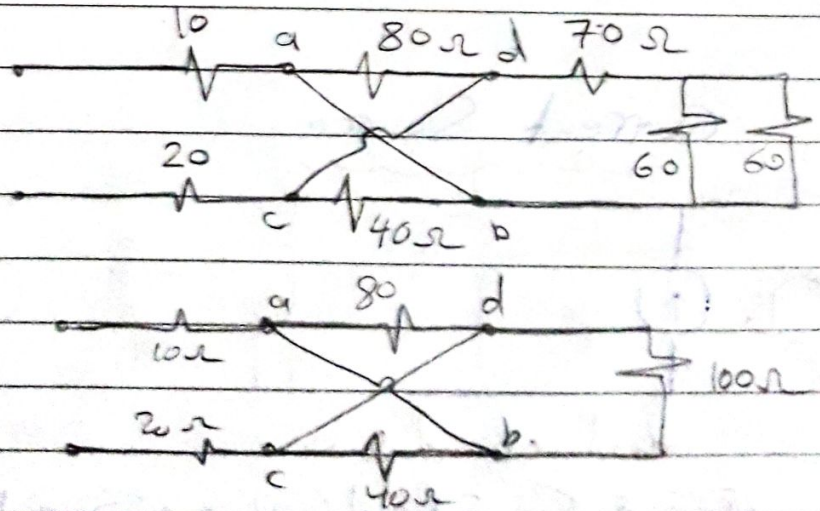 10 a 80Ω d 70Ω
20 60 60
c 40Ω b
a 80 d
10Ω 100Ω
20Ω b.
c 40Ω